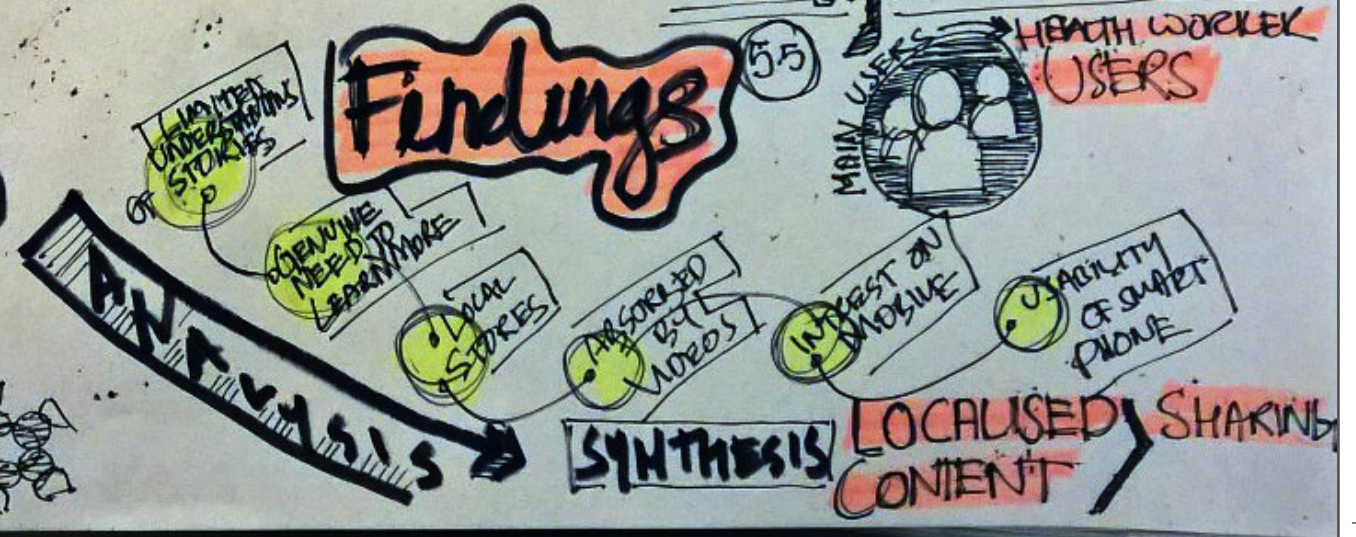 Findings
55
MAIN USERS
HEALTH WORKER
USERS
LIMITED
UNDERSTANDING
OF STORIES
GENUINE
NEED TO
LEARN MORE
LOCAL
STORIES
ABSORBED
BY
VIDEOS
INTEREST ON
MOBILE
USABILITY
OF SMART
PHONE
ANALYSIS
SYNTHESIS
LOCALISED
CONTENT
SHARING